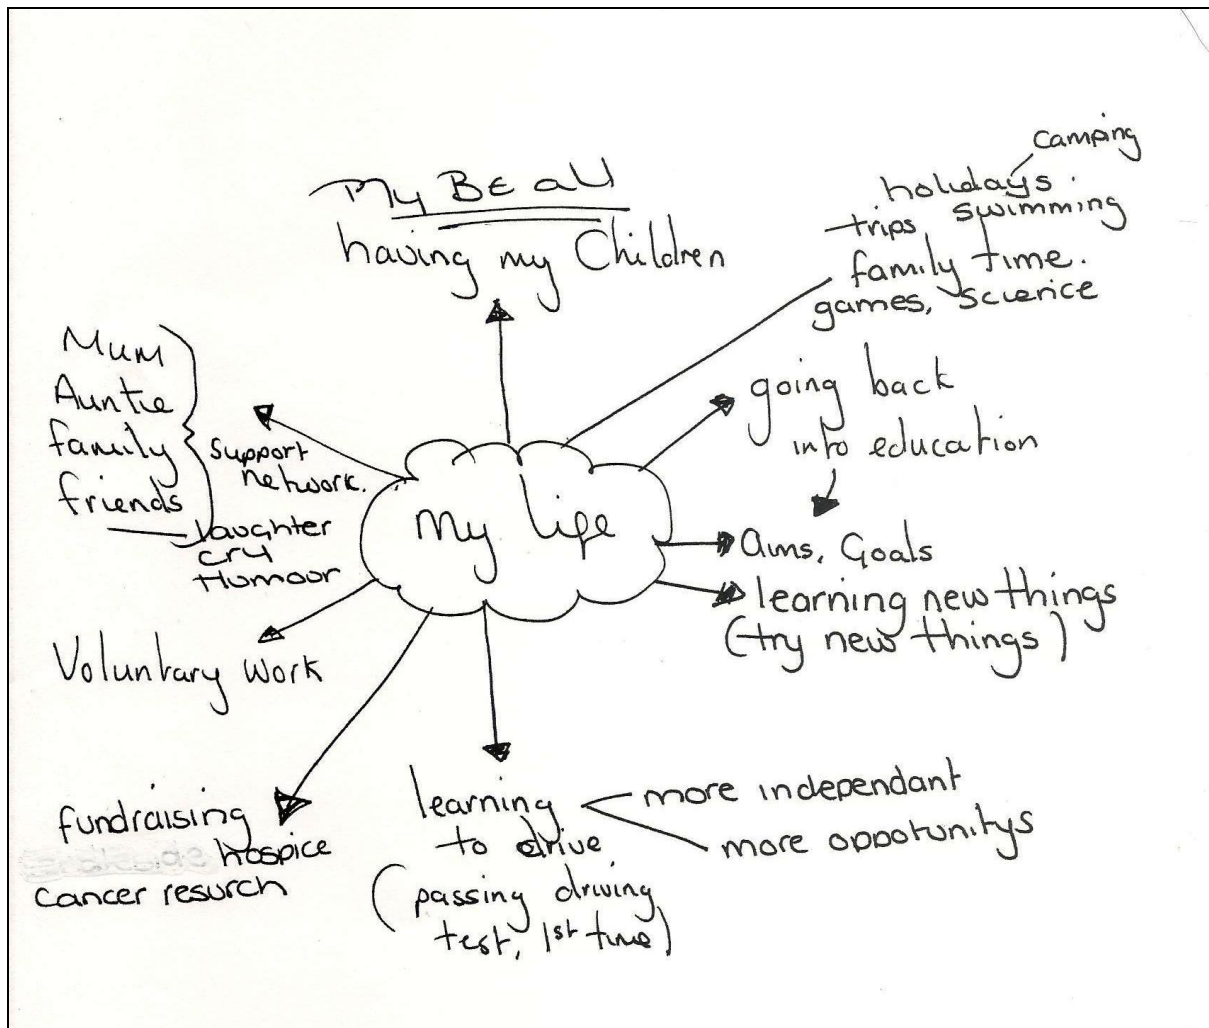 My BE all
having my Children
camping
holidays.
trips swimming
family time.
games, science
going back
into education
Aims, Goals
learning new things
(try new things)
learning
to drive
(passing driving
test, 1st time)
more independant
more oppotunitys
fundraising
hospice
cancer resurch
Voluntary work
Mum
Auntie
family
friends
Support
network.
laughter
cry
Humour
My life